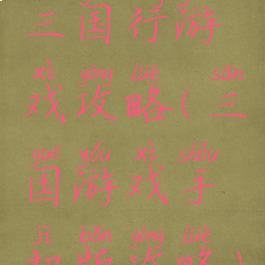 三国行游
xì gōng lüè sān
戏攻略(三
guó yóu xì shǒu
国游戏手
jī bǎn gōng lüè
机版攻略)